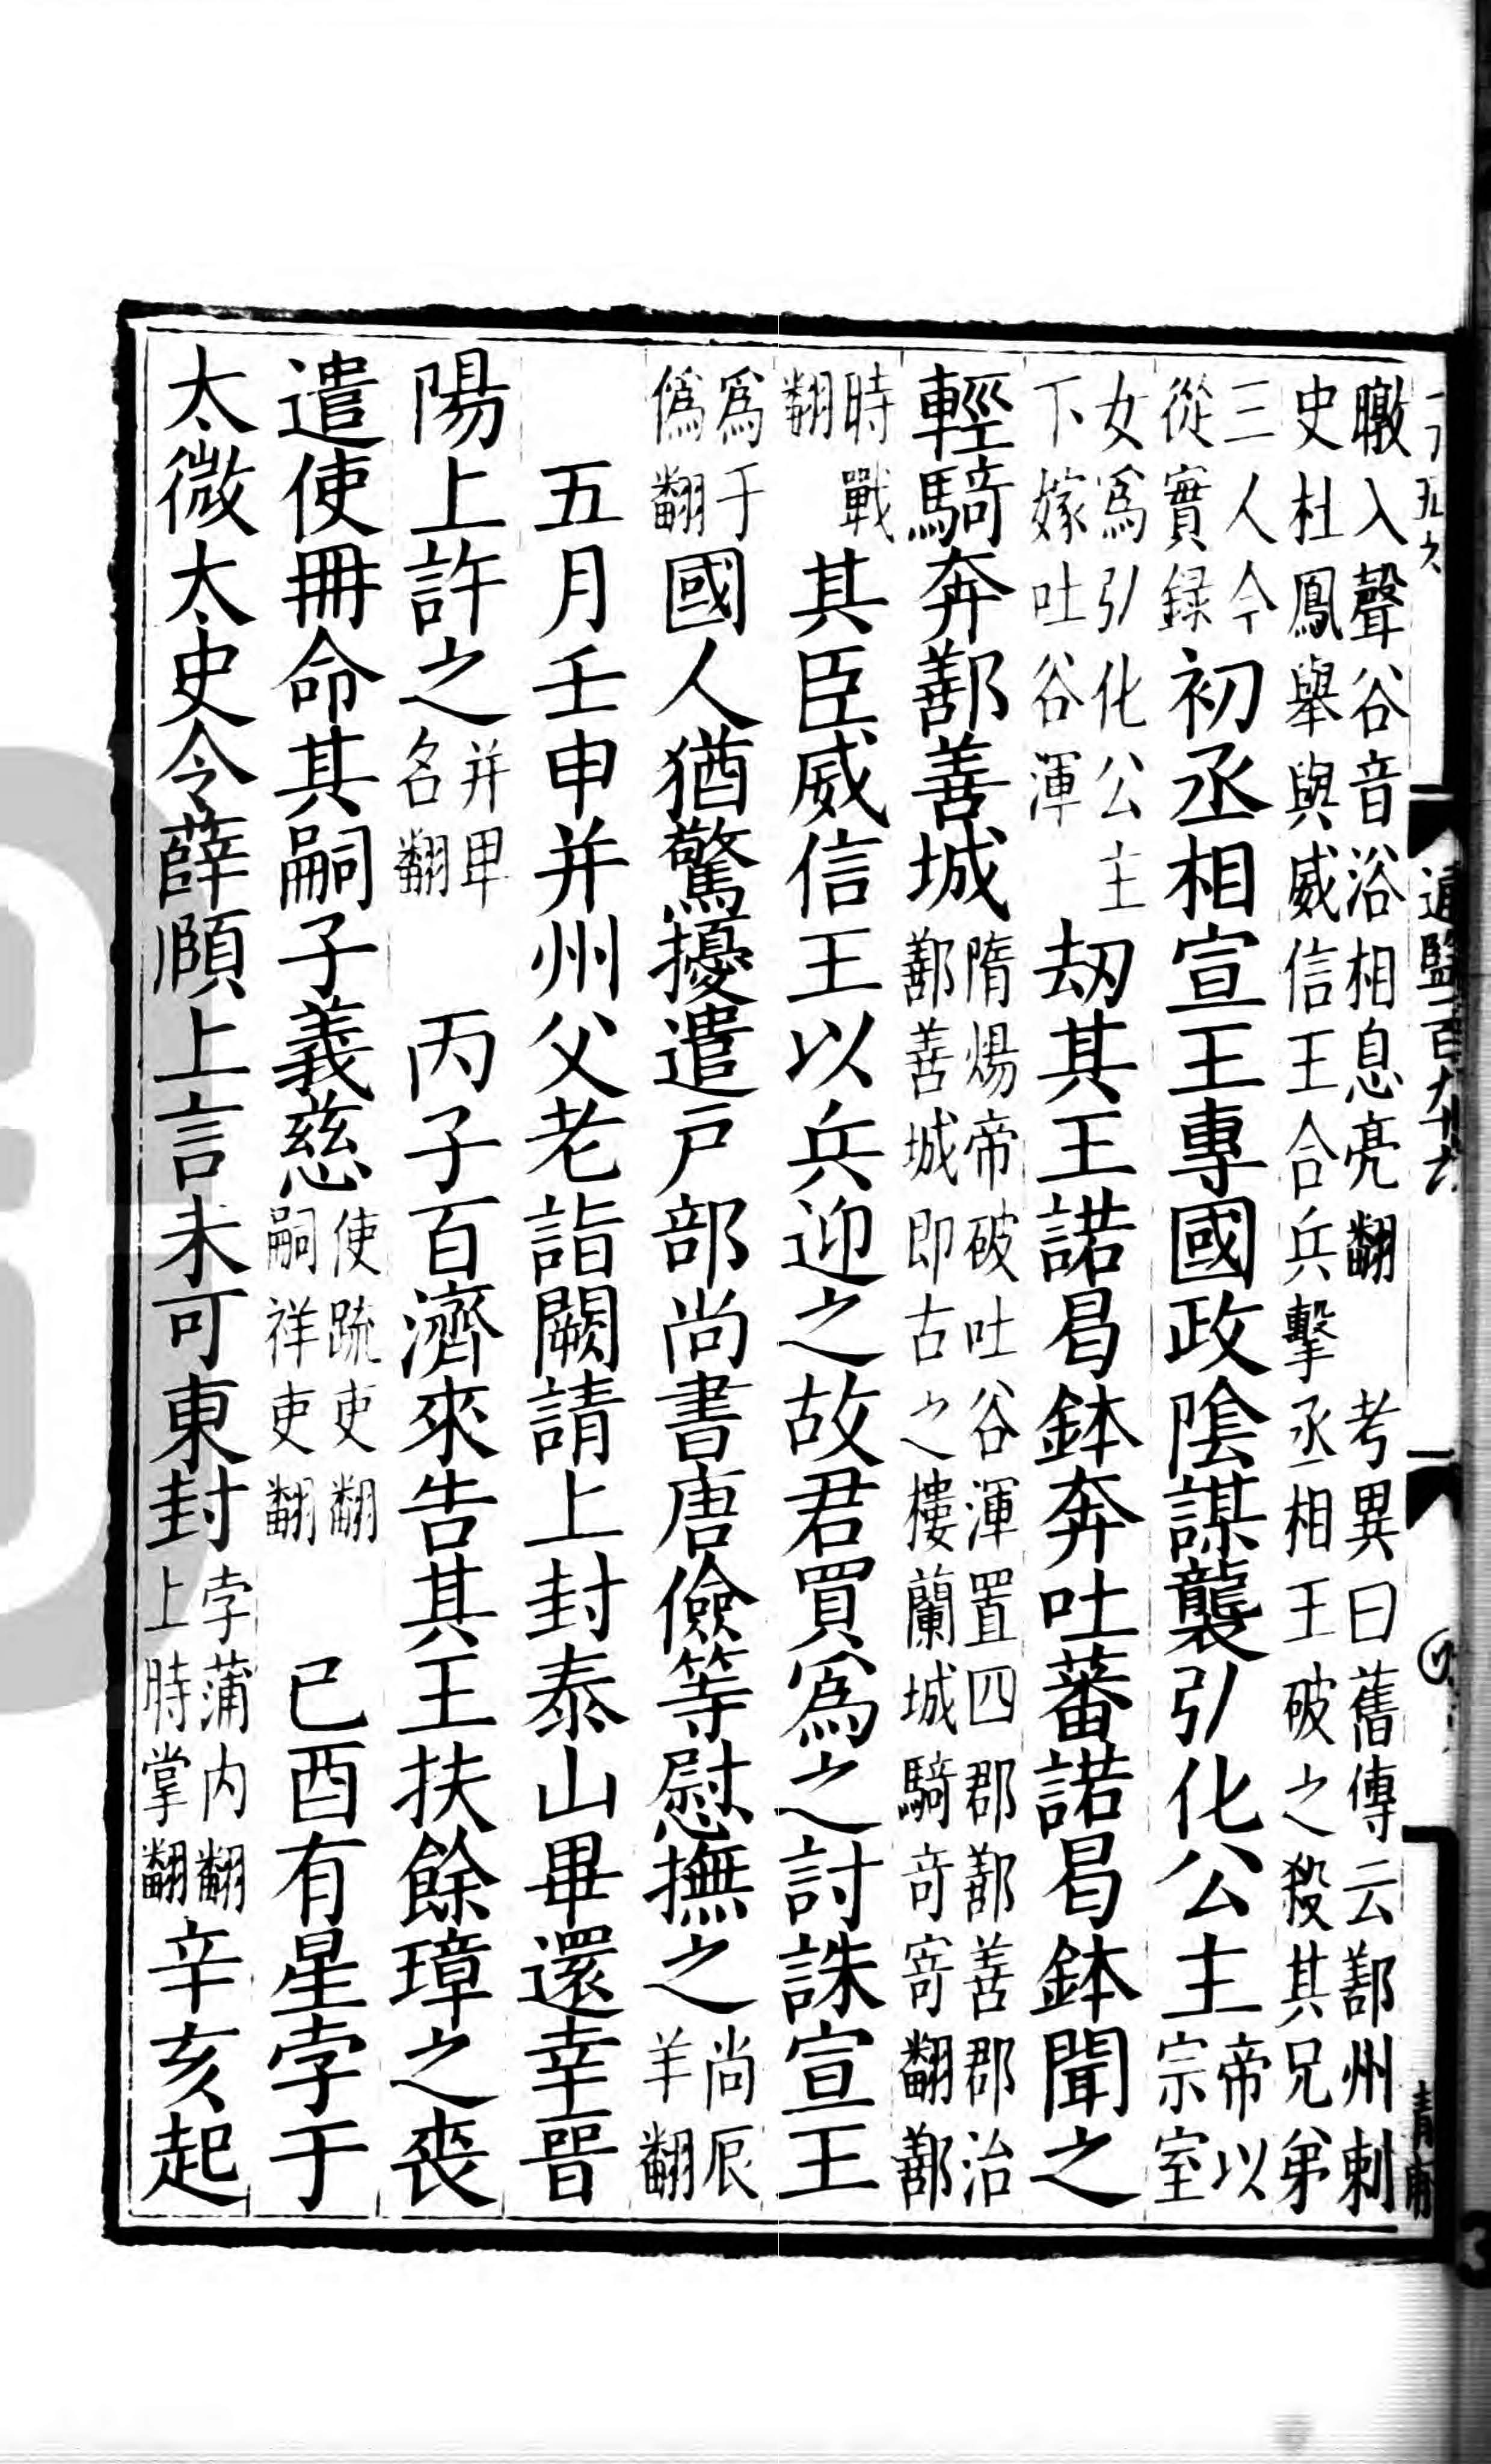 暾入聲谷音浴相息亮翻　考異曰舊傳云鄯州刺
史杜鳳舉與威信王合兵擊丞相王破之殺其兄弟
三人今從實録初丞相宣王專國政陰謀襲引化公主帝以宗室
女爲引化公主下嫁吐谷渾劫其王諾曷鉢奔吐蕃諾曷鉢聞之
輕騎奔鄯善城隋煬帝破吐谷渾置四郡鄯善郡治鄯善城即古之樓蘭城騎奇寄翻鄯
時戰翻其臣威信王以兵迎之故君買爲之討誅宣王
爲于僞翻國人猶驚擾遣戶部尚書唐儉等慰撫之尚辰羊翻
五月壬申并州父老詣闕請上封泰山畢還幸晉
陽上許之并卑名翻　丙子百濟來告其王扶餘璋之喪
遣使冊命其嗣子義慈使疏吏翻嗣祥吏翻　己酉有星孛于
太微太史令薛頤上言未可東封孛蒲内翻上時掌翻辛亥起